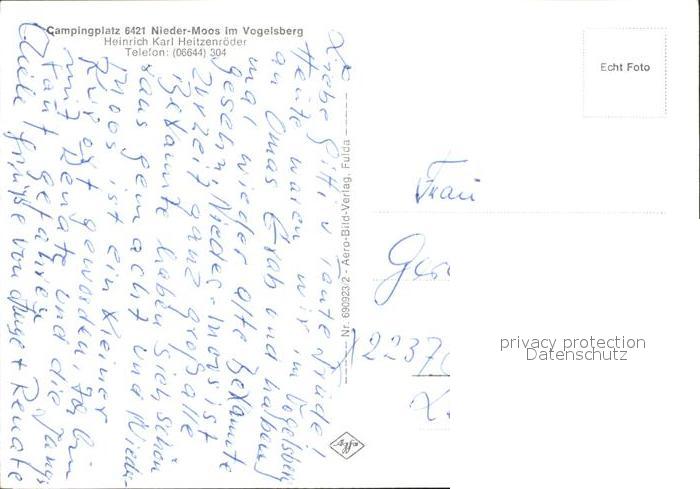 Campingplatz 6421 Nieder-Moos im Vogelsberg
Heinrich Karl Heitzenröder
Telefon: (06644) 304
Liebe Gitti u Tante Friedel!
Heute waren wir im Vogelsberg
an Omas Grab und haben
mal wieder alte Bekannte
gesehn, Nieder-moos ist
zurzeit ganz groß alle
Bekannte haben sich schön
raus gemacht und Nieder-
moos ist ein kleiner
Kurort geworden, Ich bin
mit Renate und die Jungs
rauf gefahren
Viele Grüße von Inge + Renate
Nr. 690923/2 - Aero-Bild-Verlag, Fulda
Agfa
Echt Foto
Frau
2237
privacy protection
Datenschutz